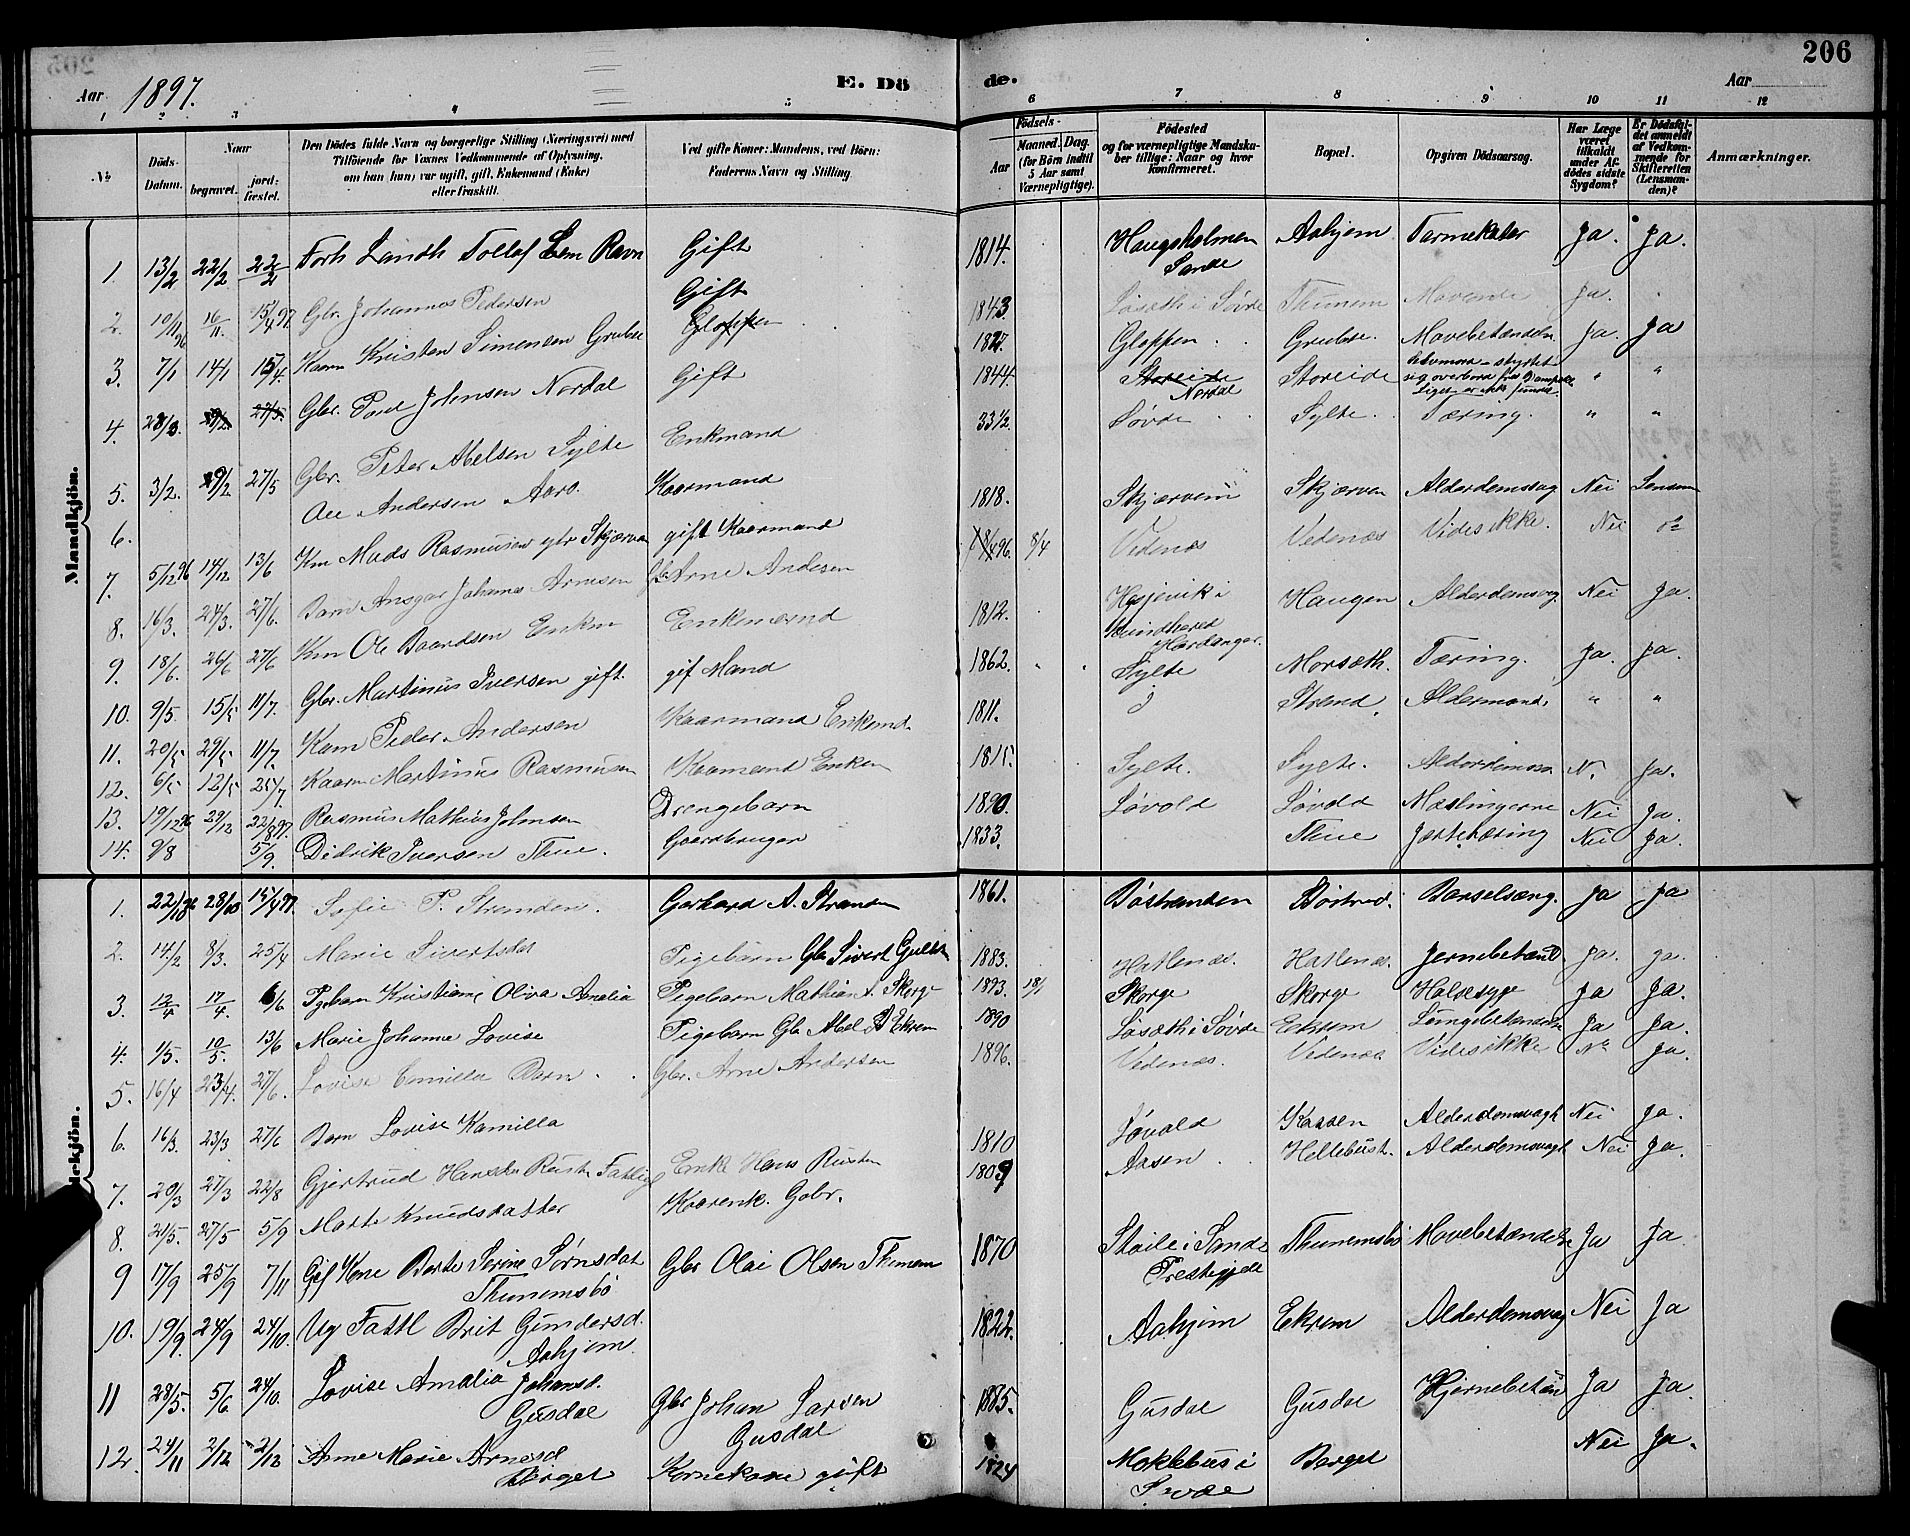 206
Aar 1897.
E. Dö
de.
Aar
1 2 3 4 5 6 7 8 9 10 11 12
№
Döds-Datum.
Naar
begravet.
jord-fæstet.
Den Dödes fulde Navn og borgerlige Stilling (Næringsvei) med
Tilföiende for Voxnes Vedkommende af Oplysning,
om han (hun) var ugift, gift, Enkemand (Enke)
eller fraskilt.
Ved gifte Koner: Mandens, ved Börn:
Faderens Navn og Stilling.
Födsels-
Aar
Maaned. Dag.
(for Börn indtil 5 Aar samt Værnepligtige).
Födested
og for værnepligtige Mandska-
ber tillige: Naar og hvor
konfirmeret.
Bopæl.
Opgiven Dödsaarsag.
Har Læge været tilkaldt under Af-dödes sidste Sygdom?
Er Dödsfal-det anmeldt af Vedkom-mende for Skifteretten (Lensman-den)?
Anmærkninger.
Mandkjön.
1. 13/2 22/2 22/2 Forh Landh Tollof Lem Ravn Gift 1814. Haugsholmen Sande Aahjem Tarmekatar Ja. Ja.
2. 10/11 96 16/11. 15/4 97 Gbr. Johannes Pedersen Gift 1843 Løseth i Søvde Thunem Mavende Ja.
3. 7/1 14/1 15/4. Kaarm Kristen Simonsen Grubse Gloppen 1827. Gloppen Grubse. Mavebetændels. Ja. Ja
4. 28/3. 27/5. Gbr. Paul Johnsen Nordal Gift 1844. Storeide Nordal Storeide styrtet sig overbord fra Dampsk. Liget er ikke funnet " "
5. 3/2. 9/2 27/5 Gbr. Peter Abelsen Sylte Enkmand 33 1/2. Søvde Sylte. Tæring. " "
6. Ole Andersen Aaro. Kaarmand 1818. Skjærvem Skjærven Alderdomssvag Nei Lensm
7. 5/12 96 14/12 13/6 Km Mads Rasmusen gbr Skjærven gift Kaarmand 8/4 96. 8/4 Vedenæs Vedenæs Vides ikke. Nei do
8. 16/3. 24/3. 27/6. Barn Ansgar Johannes Arnesen Gbr Arne Andesen 1812. i Kvindhered Hardanger. Haugen Alderdomsvag Nei Ja.
9. 18/6 26/6 27/6 Km Ole Baardsen Enkm Enkmænd 1862. Sylte Morsæth. Tæring. Ja. Ja.
10. 9/5. 15/5 11/7. Gbr. Martinus Iversen gift. gif Mand 1811. Strand Aldermand " "
11. 20/5 29/5 11/7. Kam Peder Andersen Kaarmand Enkemd. 1815. Sylte. Sylte. Alderdomssv N. Ja.
12. 6/5 12/5 25/7 Kaarm Martinus Rasmusen Kaarmand Enkem 1890. Løvold Søvde Mæslingerne Nei Ja.
13. 19/12 96 29/12 22/8 97. Rasmus Mathias Johnsen Drengebarn 1833. Thue Nei Ja.
14. 9/8 5/9. Didrik Iversen Thue. Gaardbruger
Kvindekjön.
1. 22/10 96 28/10 15/4 97. Sofie P. Stranden. Gerhard A. Stranden 1861. Bøstranden Barselseng. Ja Ja
2. 14/2 8/3. 25/4 Marie Sivertsdat Pigebarn Gbr Sivert 1883. Hatlenæs. Hatlenæs. Jernebetænd Ja. ja.
3. 12/4 17/4. 6/6 Pgebarn Kristiane Oliva Amalia Pigebarn Mathias A. Skorge 1893. 18/1 Skorge Skorge Halssyge Ja Ja.
4. 1/5. 10/5. 13/6 Marie Johanne Lovise Pigebarn Gbr Abel A Ekrem 1890 Løsæth i Søvde Eckrem Lungebetændelse Ja Ja.
5. 16/4 23/4. 27/6. Lovise Camilla Barn Gbr. Arne Andersen 1896. Vedenæs. Vedenæs Vides ikke Nei Ja.
6. 16/3. 23/3 27/6 Barn Lovise Kamilla 1810 Løvold Kassen Alderdomsvagh Nei Ja.
7. 20/3 27/3 22/8 Gjertrud Hansdtr Rust Fattig Enke Hans Rusten 1809 Aasen Hellebust. Alderdomsvagh Nei Ja.
8. 21/5. 27/5 5/9 Marte Knudsdatter Kaarenk. Gabr.
9 17/9 25/9 7/11 Gif Kone Berte Serine Sørnsdat Thunemsbö Gbr Olai Olsen Thunem 1870 Støile i Sande Prestegjeld Thunemsbö Mavebetændelse Ja Ja
10. 19/9. 24/9 24/10. Ug Fattl Brit Gundersd. Aahjem. 1822. Aahjem Ekrem Alderdomsvag Nei Ja
11 28/5. 5/6. 24/10. Lovise Amalia Johansd. Gusdal Gbr Johan Larsen Gusdal 1885. Gusdal Gusdal Hjernebetæn Ja Ja.
12. 24/11 2/12 2/12 Anne Marie Arnesd Berget Konekone gift 1824 Moklebus i Søvde Berget Nei Ja.